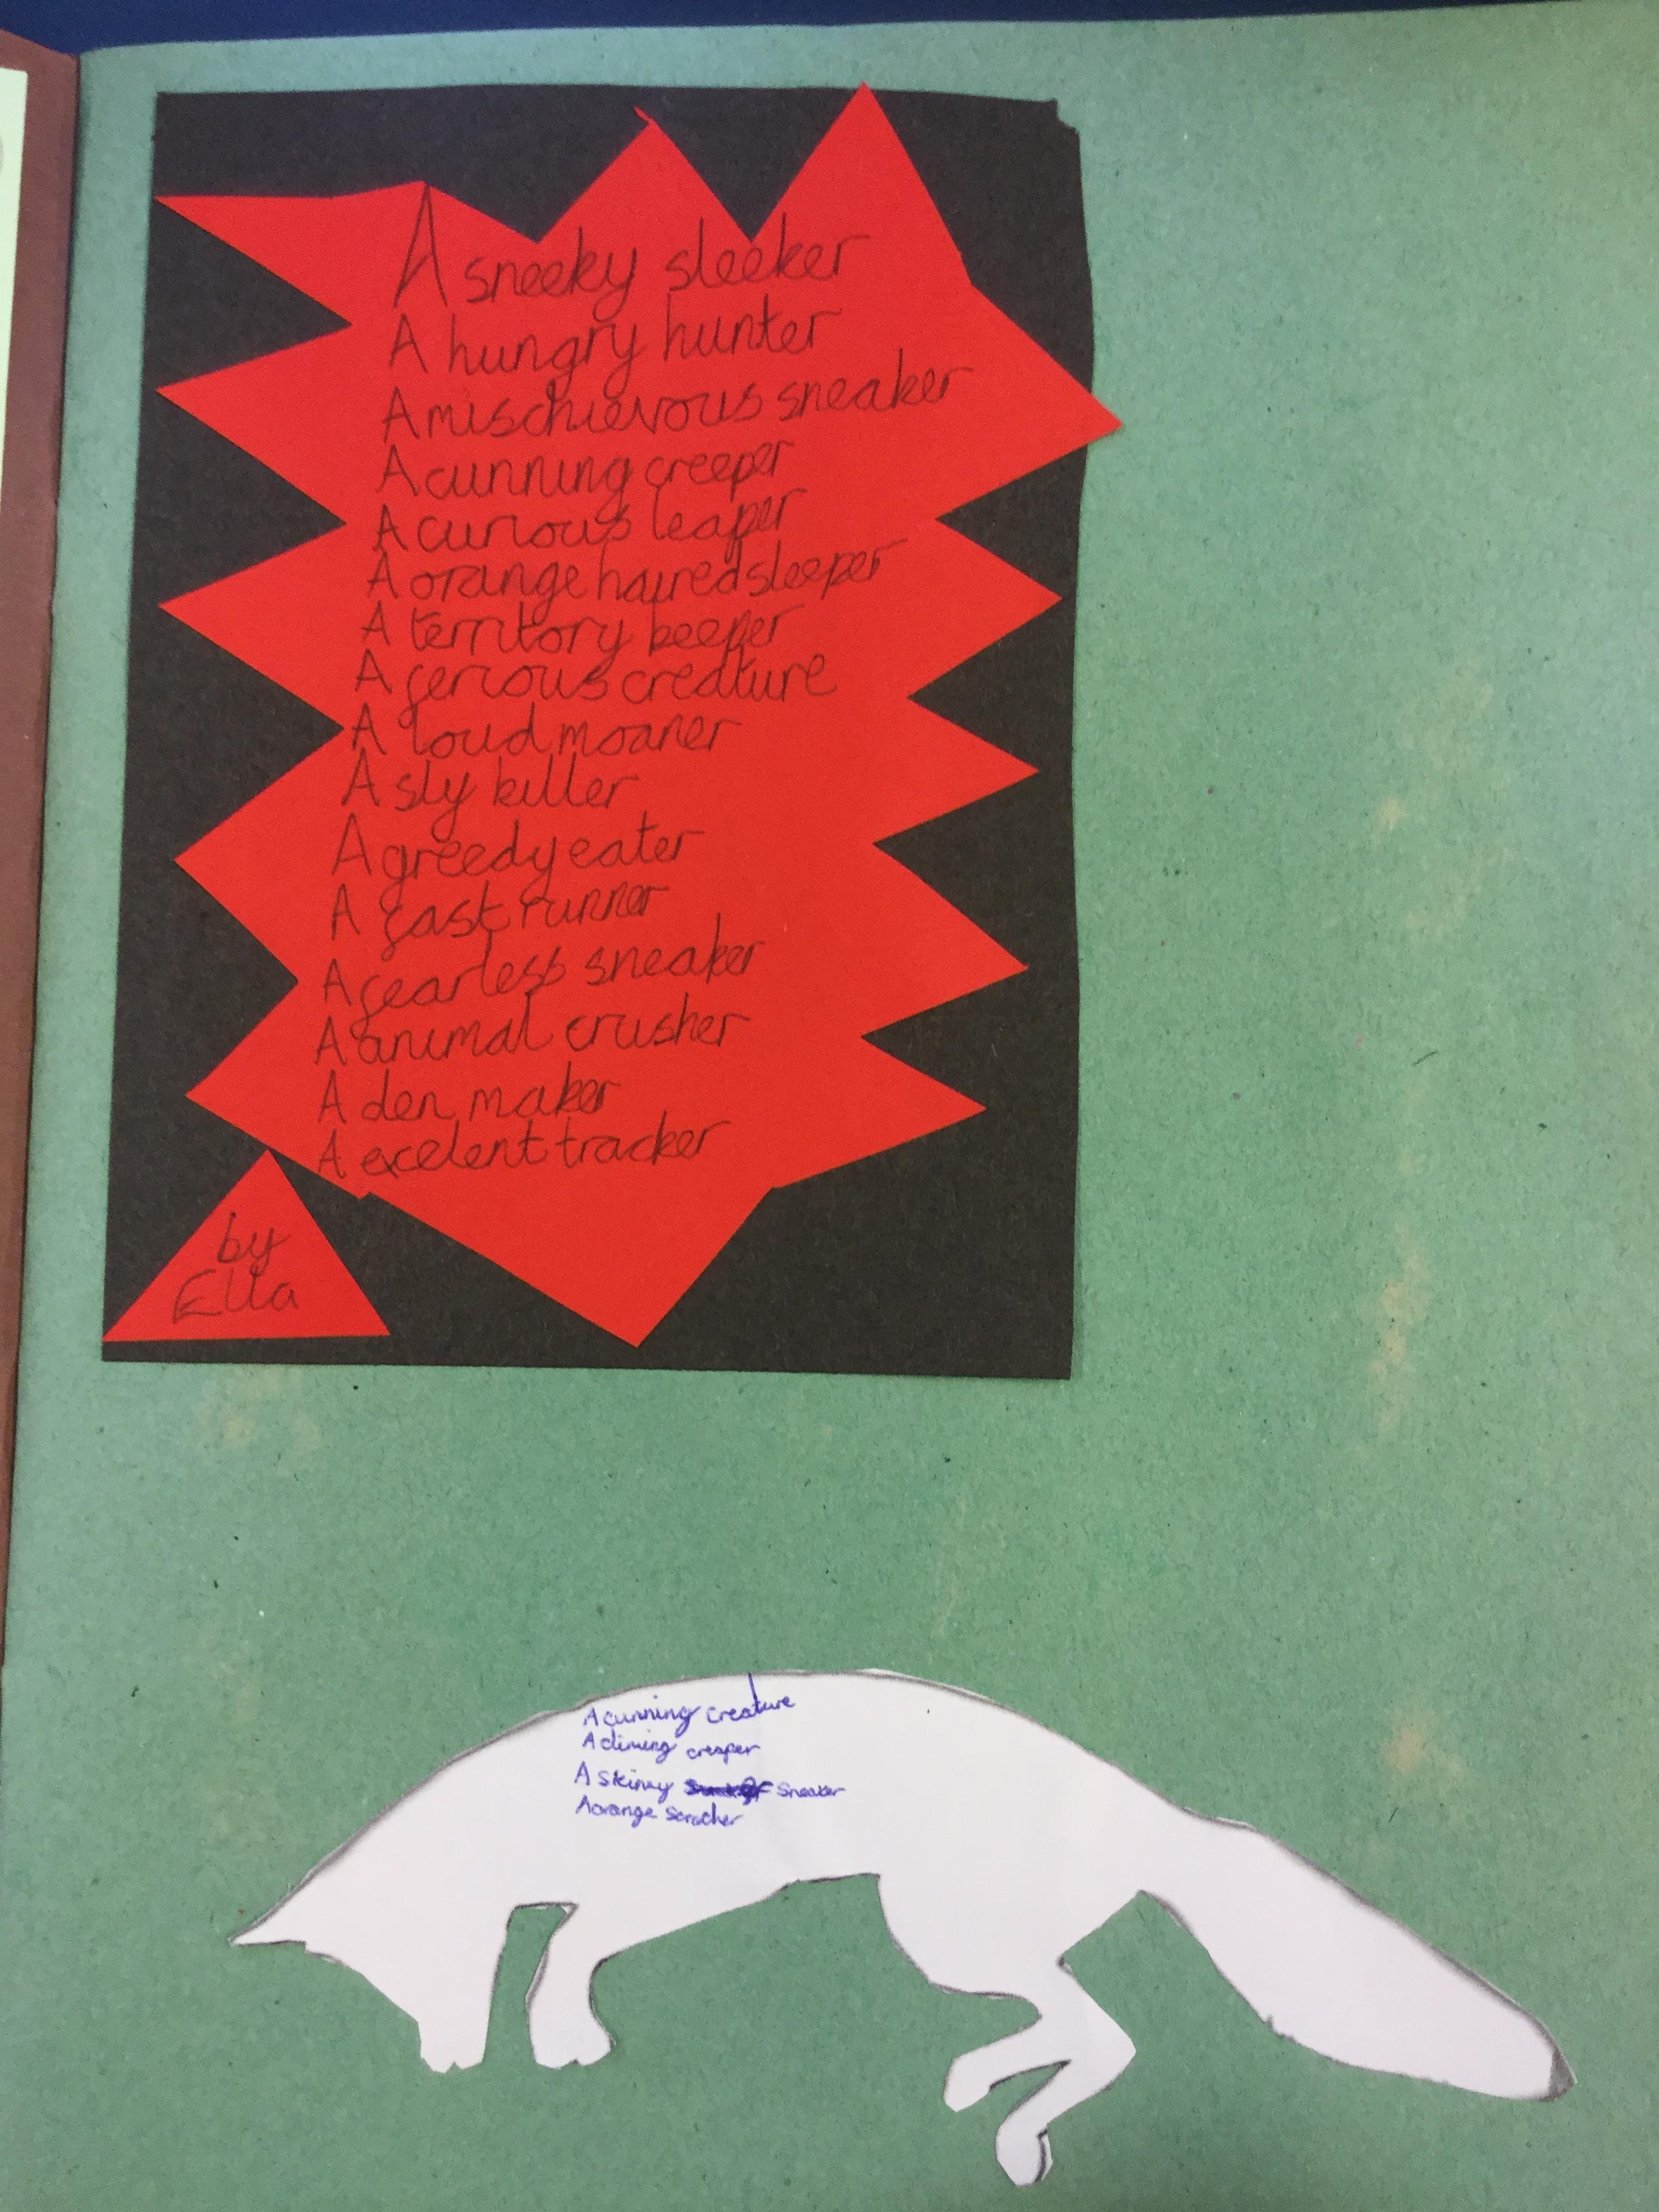 A sneeky sleeker
A hungry hunter
A mischievous sneaker
A cunning creeper
A curious leaper
A orange haired sleeper
A territory keeper
A fercious creature
A loud moaner
A sly killer
A greedy eater
A fast runner
A fearless sneaker
A animal crusher
A den maker
A excelent tracker
by
Ella
A cunning creature
A climing creaper
A skinny Sneaker
A orange scracher